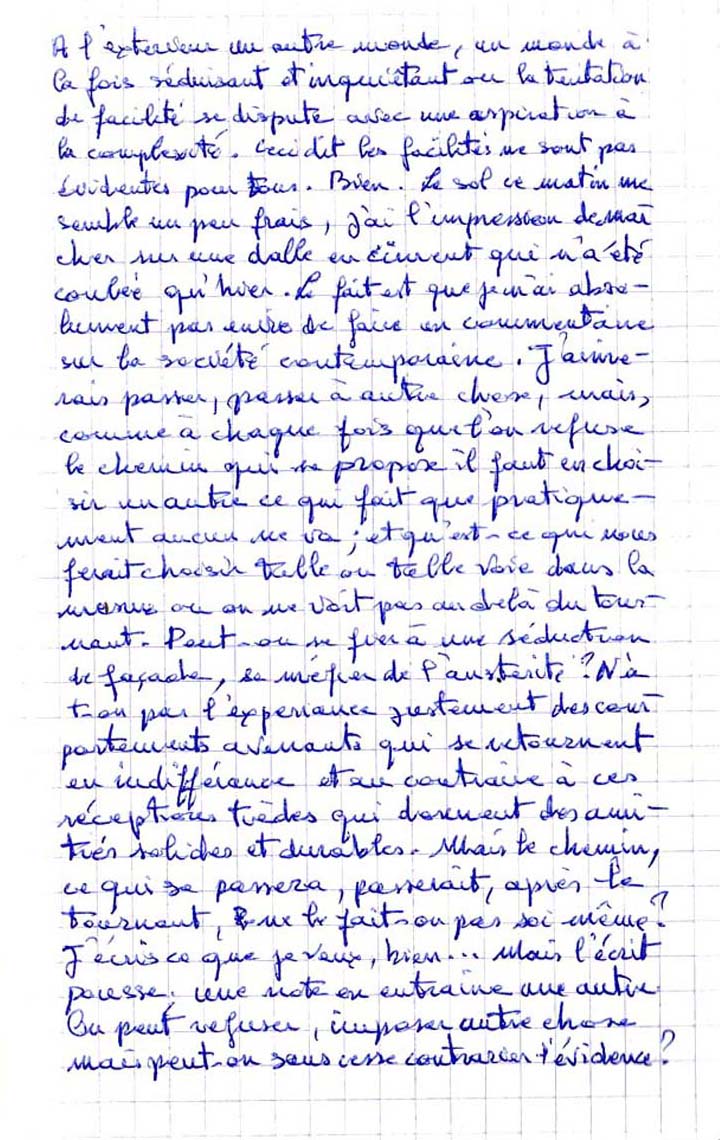 A l'exterieur un autre monde, un monde à
la fois séduisant et inquiétant ou la tentation
de facilité se dispute avec une aspiration à
la complexité. Ceci dit les facilités ne sont pas
évidentes pour tous. Bien. Le sol ce matin me
semble un peu frais, j'ai l'impression de mar
cher sur une dalle en ciment qui n'a été
coulée qu'hier. Le fait est que je n'ai abso-
lument pas envie de faire un commentaire
sur la société contemporaine. J'aime-
rais passer, passer à autre chose, mais,
comme à chaque fois que l'on refuse
le chemin qui se propose il faut en choi-
sir un autre ce qui fait que pratique-
ment aucun ne va ; et qu'est-ce qui nous
ferait choisir telle ou telle voie dans la
mesure ou on ne voit pas au delà du tour-
nant. Peut-on se fier à une séduction
de façade, se méfier de l'austérité ? N'a
t-on pas l'expérience justement des com
portements avenants qui se retournent
en indifférance et au contraire à ces
réceptions tièdes qui donnent des ami-
tiés solides et durables. Mais le chemin,
ce qui se passera, passerait, après le
tournant, ne le fait-on pas soi même ?
J'écris ce que je veux, bien... Mais l'écrit
pousse. une note en entraine une autre
On peut refuser, imposer autre chose
mais peut-on sans cesse contrarier l'évidence ?